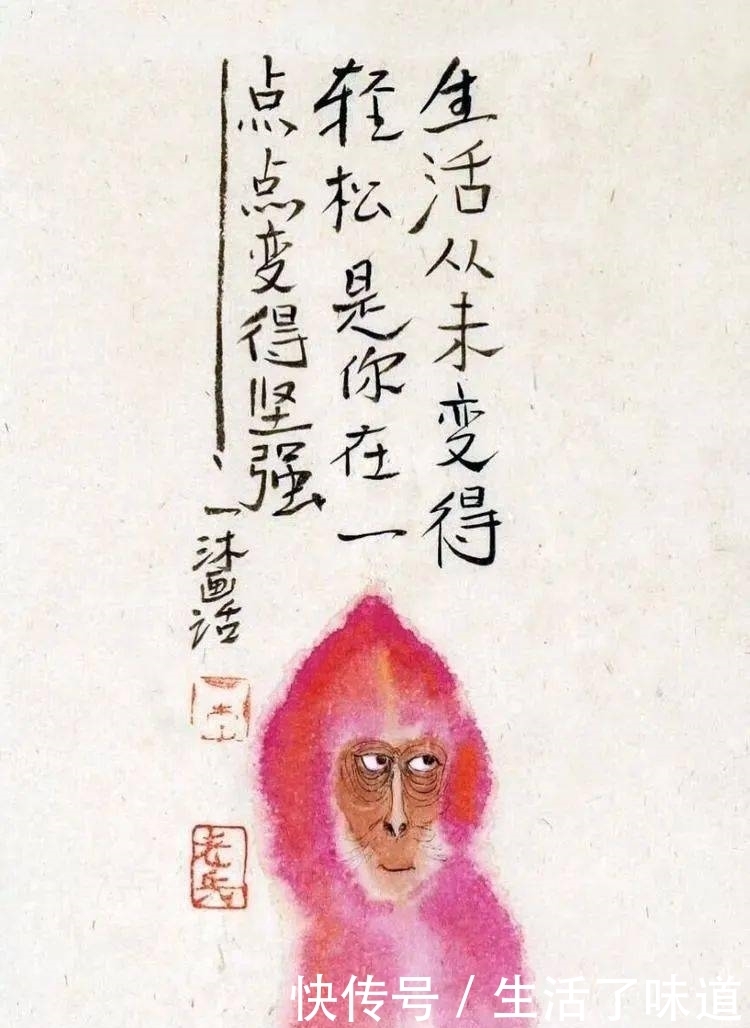 生活从未变得
轻松是你在一
点点变得坚强
一沐画话
老兵
快传号 / 生活了味道